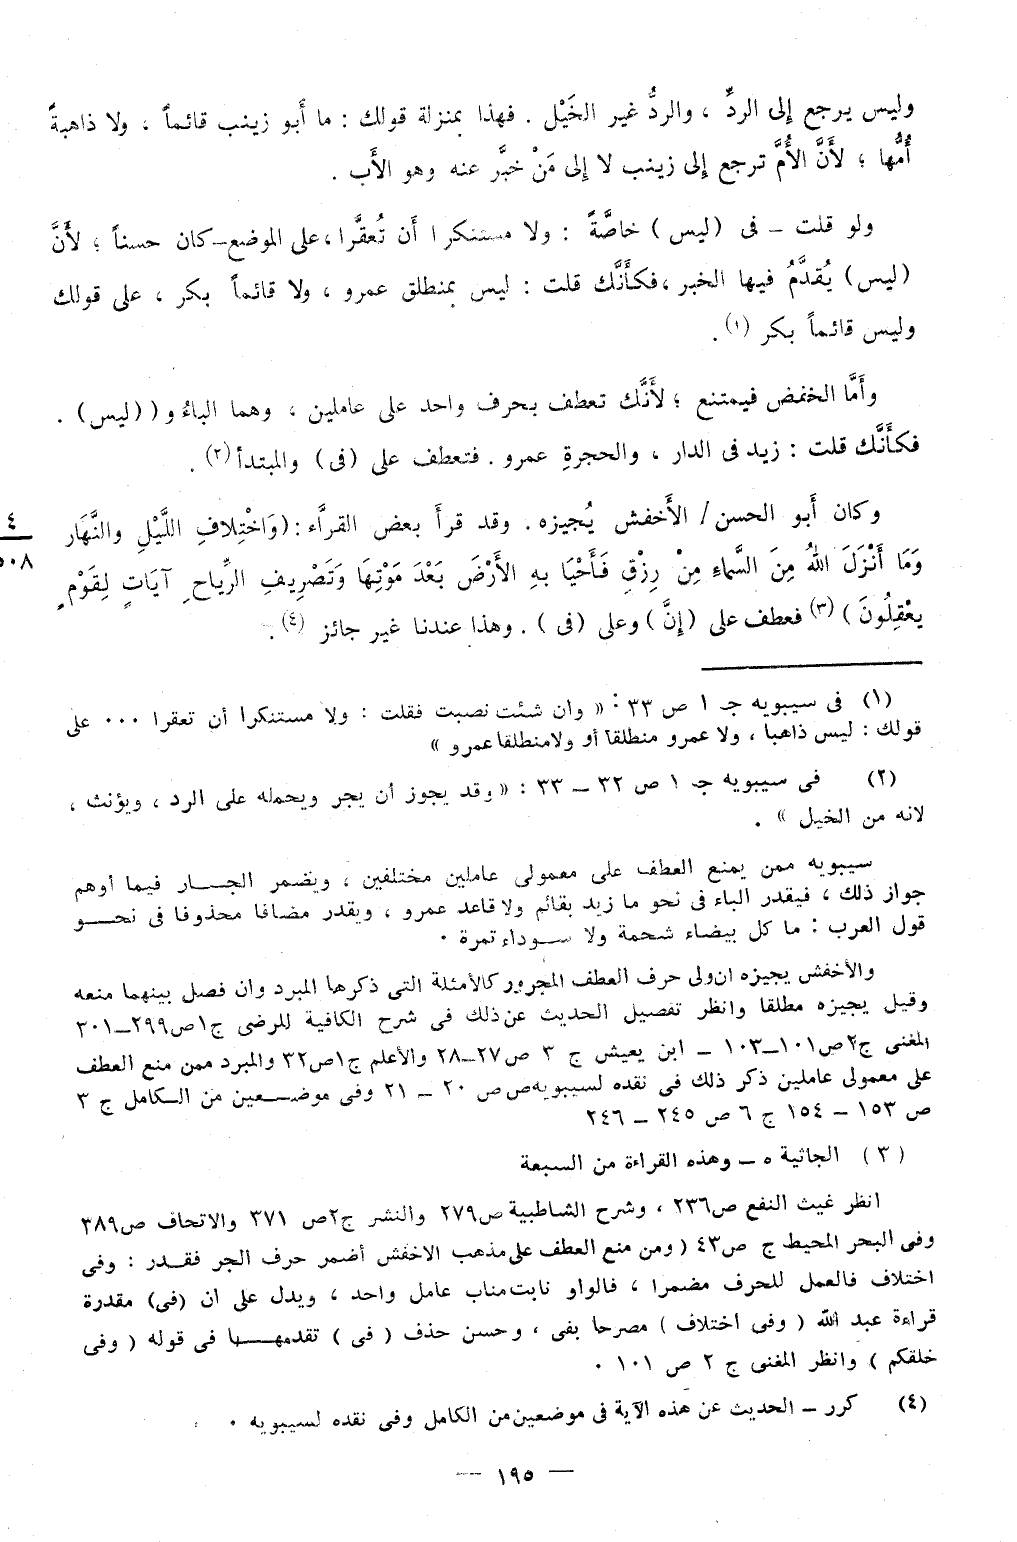 وليس يرجع إلى الردِّ ، والردُّ غير الخَيْل . فهذا بمنزلة قولك : ما أَبو زينب قائماً ، ولا ذاهبةً
أُمُّها ؛ لأَنَّ الأُمَّ ترجع إلى زينب لا إلى مَنْ خبَّر عنه وهو الأَب .
ولو قلت – فى (ليس) خاصَّةً : ولا مستنكرا أَن تُعقَّرا ، على الموضع – كان حسناً ؛ لأَنَّ
(ليس) يُقدَّمُ فيها الخبر ، فكأَنَّك قلت : ليس بمنطلق عمرو ، ولا قائماً بكر ، على قولك
وليس قائماً بكر (١) .
وأَمَّا الخفض فيمتنع ؛ لأَنَّك تعطف بحرف واحد على عاملين ، وهما الباءُ و ((ليس) .
فكأَنَّك قلت : زيد فى الدار ، والحجرةِ عمرو . فتعطف على (فى) والمبتدأ (٢) .
وكان أَبو الحسن / الأَخفش يُجيزه . وقد قرأَ بعض القرَّاء : (وَاخْتِلافِ اللَّيْلِ والنَّهَار
٤
٥٠٨
وَمَا أَنْزَلَ اللهُ مِنَ السَّماء مِنْ رِزْقٍ فَأَحْيَا بهِ الأَرْضَ بَعْدَ مَوْتِهَا وَتَصْرِيفِ الرِّياح ِ آيَاتٍ لِقَوْم ٍ
يعْقِلُونَ ) (٣) فعطف على (إنَّ) وعلى (فى ) . وهذا عندنا غير جائز (٤) .
(١) فى سيبويه جـ ١ ص ٣٣ : « وان شئت نصبت فقلت : ولا مستنكرا أن تعقرا ٠٠٠ على
قولك : ليس ذاهبا ، ولا عمرو منطلقا أو ولا منطلقا عمرو »
(٢) فى سيبويه جـ ١ ص ٣٢ – ٣٣ : « وقد يجوز أن يجر ويحمله على الرد ، ويؤنث ،
لانه من الخيل » .
سيبويه ممن يمنع العطف على معمولى عاملين مختلفين ، ويضمر الجــار فيما أوهم
جواز ذلك ، فيقدر الباء فى نحو ما زيد بقائم ولا قاعد عمرو ، ويقدر مضافا محذوفا فى نحــو
قول العرب : ما كل بيضاء شحمة ولا سـوداء تمرة ٠
والأخفش يجيزه ان ولى حرف العطف المجرور كالأمثلة التى ذكرها المبرد وان فصل بينهما منعه
وقيل يجيزه مطلقا وانظر تفصيل الحديث عن ذلك فى شرح الكافية للرضى ج١ص٢٩٩–٣٠١
المغنى ج٢ص١٠١–١٠٣ – ابن يعيش ج ٣ ص٢٧–٢٨ والأعلم ج١ص٣٢ والمبرد ممن منع العطف
على معمولى عاملين ذكر ذلك فى نقده لسيبويه ص ص ٢٠ – ٢١ وفى موضـعين من الـكامل ج ٣
ص ١٥٣ – ١٥٤ ج ٦ ص ٢٤٥ – ٢٤٦
( ٣ ) الجاثية ٥ – وهذه القراءة من السبعة
انظر غيث النفع ص٢٣٦ ، وشرح الشاطبية ص٢٧٩ والنشر ج٢ص ٣٧١ والاتحاف ص٣٨٩
وفى البحر المحيط ج ص٤٣ ( ومن منع العطف على مذهب الاخفش أضمر حرف الجر فقـدر : وفى
اختلاف فالعمل للحرف مضمرا ، فالواو نابت مناب عامل واحد ، ويدل على ان (فى) مقدرة
قراءة عبد الله ( وفى اختلاف ) مصرحا بفى ، وحسن حذف ( فى ) تقدمهــا فى قوله ( وفى
خلقكم ) وانظر المغنى ج ٢ ص ١٠١ ٠
(٤) كرر – الحديث عن هذه الآية فى موضعين من الكامل وفى نقده لسيبويه ٠
— ١٩٥ —